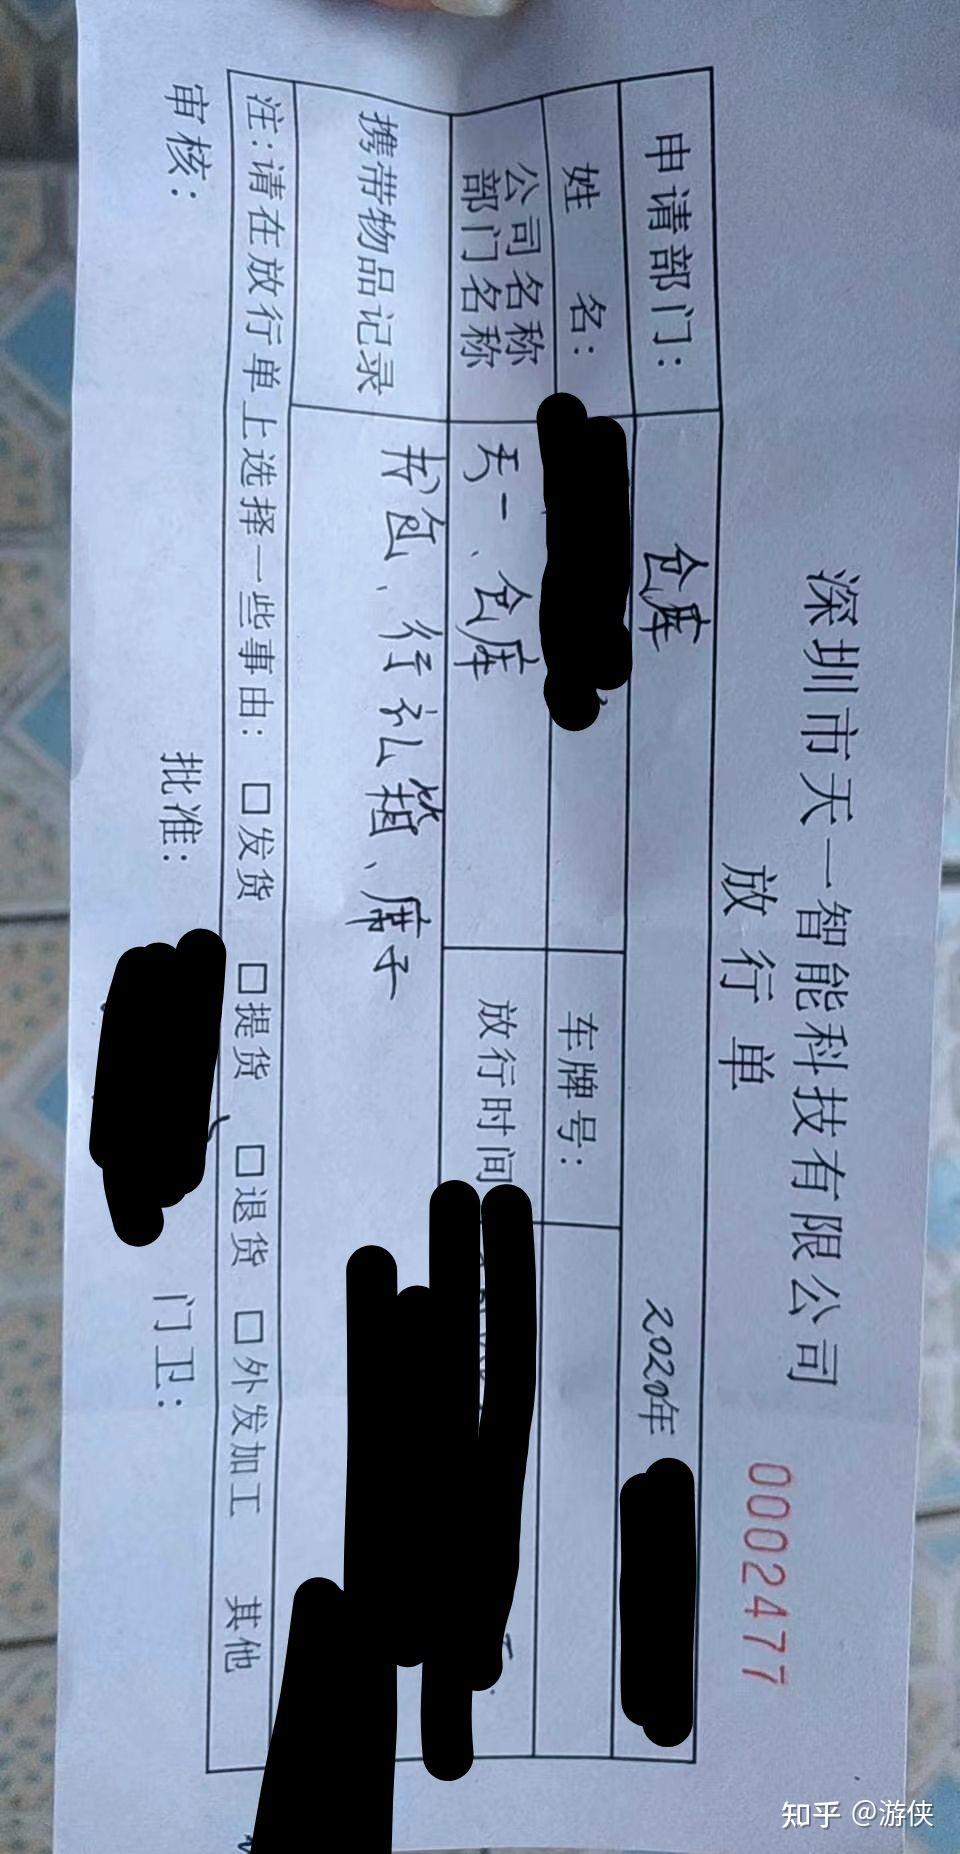 深圳市天一智能科技有限公司
放行单 0002477
申请部门： 仓库 2020年
姓名： 车牌号：
公司名称
部门名称 天一、仓库 放行时间
携带物品记录 书包、行礼箱、席子
注：请在放行单上选择一些事由： □发货 □提货 □退货 □外发加工 其他
审核： 批准： 门卫：
知乎 @游侠